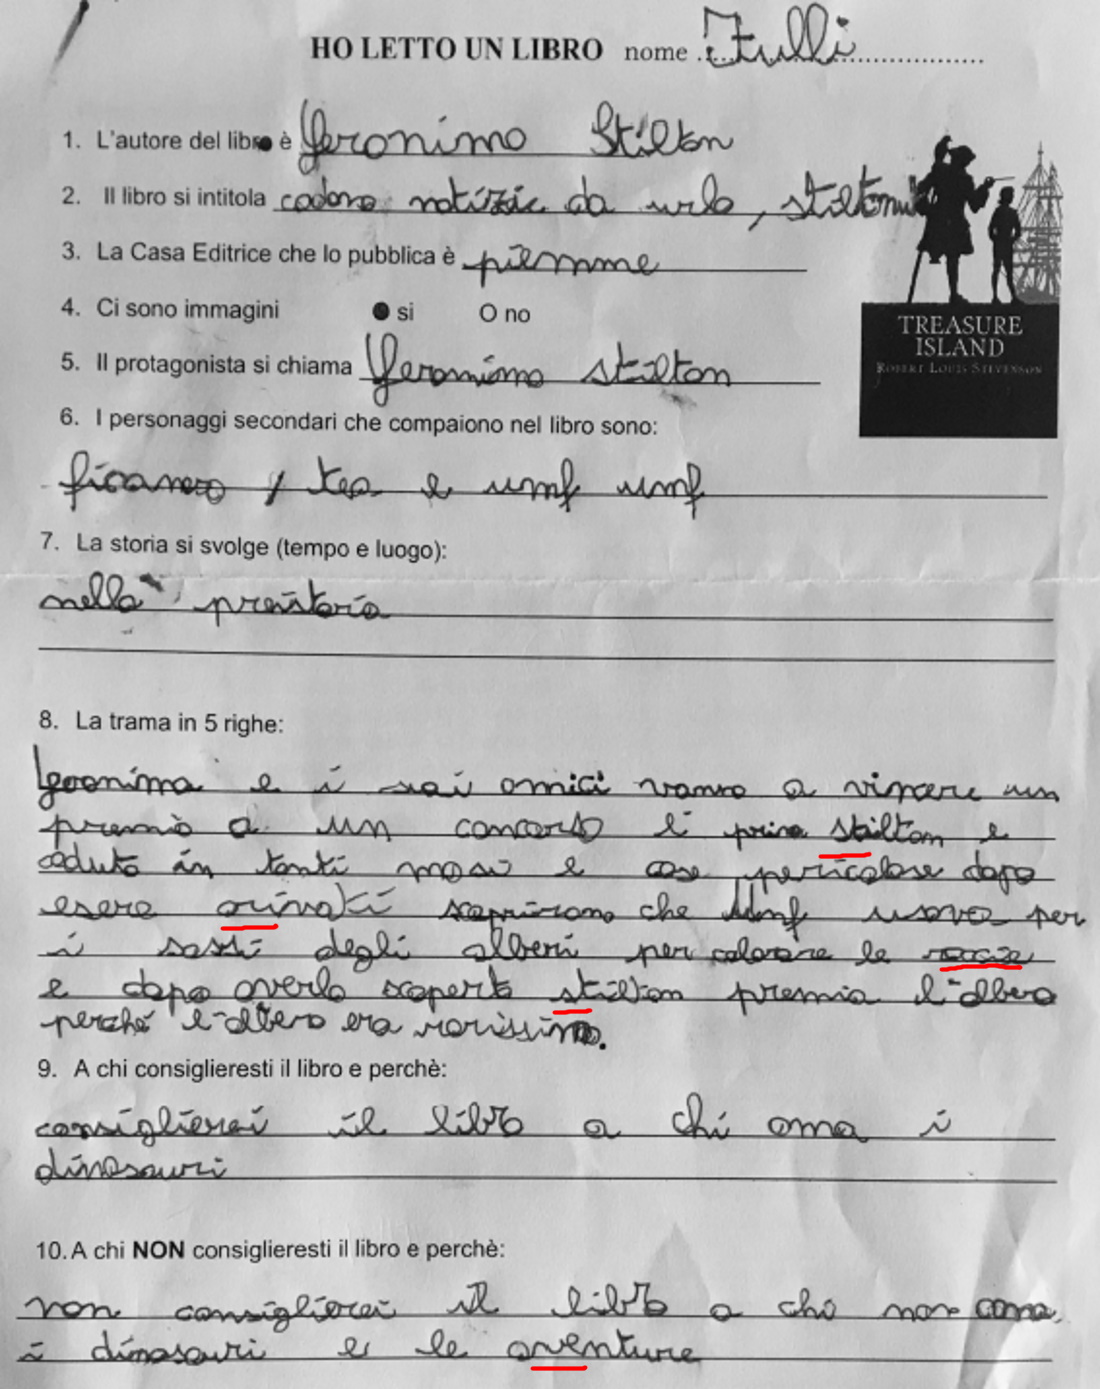 HO LETTO UN LIBRO nome Tulli
1. L'autore del libro è Geronimo Stilton
2. Il libro si intitola cadono notizie da urlo, stiltonut
3. La Casa Editrice che lo pubblica è piemme
4. Ci sono immagini si O no
5. Il protagonista si chiama Geronimo stilton
6. I personaggi secondari che compaiono nel libro sono:
ficanaso, tea e umf umf
7. La storia si svolge (tempo e luogo):
nella preistoria
8. La trama in 5 righe:
Geronimo e i suoi amici vanno a vincere un
premio a un concorso e prima stailton e
caduto in tanti e cose pericolose dopo
esere arivati scoprirono che Umf usava per
i sassi degli alberi per colorare le rocie
e dopo averlo scoperto stilton premia l'albero
perché l'albero era rarissimo.
9. A chi consiglieresti il libro e perchè:
consiglierei il libro a chi ama i
dinosauri
10. A chi NON consiglieresti il libro e perchè:
non consiglierei il libro a chi non ama
i dinosauri e le aventure
TREASURE
ISLAND
ROBERT LOUIS STEVENSON